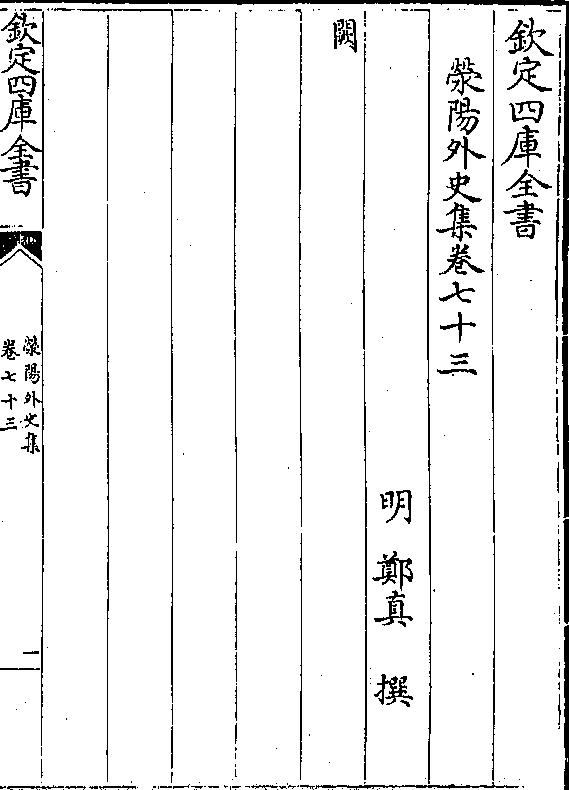 欽定四庫全書
滎陽外史集卷七十三
明 鄭真 撰
闕
欽定四庫全書
滎陽外史集
卷七十三
一